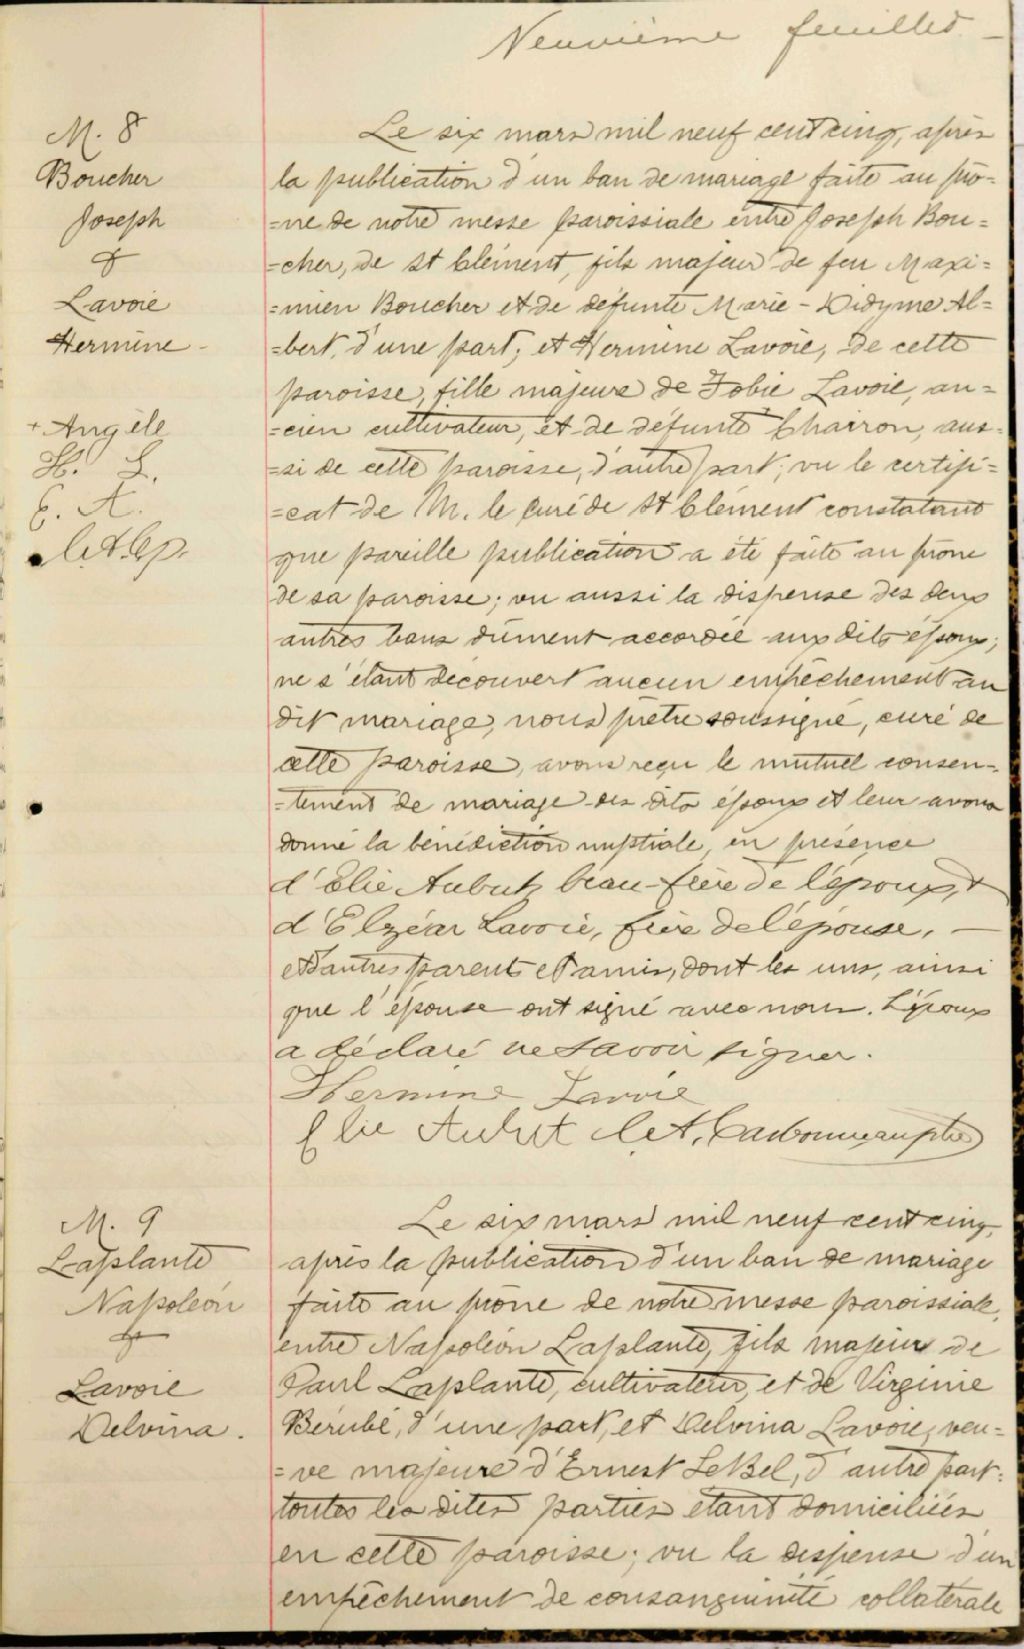 Neuvième feuillet
M. 8
Boucher
Joseph
&
Lavoie
Hermine
+ Angèle
H. L.
E. A.
Le six mars mil neuf cent cinq, après
la publication d'un ban de mariage faite au prô=
=ne de notre messe paroissiale entre Joseph Bou=
=cher, de St Clément, fils majeur de feu Maxi=
=mien Boucher et de défunte Marie-Didyme Al=
=bert, d'une part; et Hermine Lavoie, de cette
paroisse, fille majeure de Tobie Lavoie, an=
=cien cultivateur, et de défunte Charron, aus=
=si de cette paroisse, d'autre part; vu le certifi=
=cat de M. le Curé de St Clément constatant
que pareille publication a été faite au prône
de sa paroisse; vu aussi la dispense des deux
autres bans dûment accordée aux dits époux;
ne s'étant découvert aucun empêchement au
dit mariage, nous prêtre soussigné, curé de
cette paroisse, avons reçu le mutuel consen=
=tement de mariage des dits époux et leur avons
donné la bénédiction nuptiale, en présence
d'Elie Aubut, beau-frère de l'époux, &
d'Elzéar Lavoie, frère de l'épouse, —
et d'autres parents et amis, dont les uns, ainsi
que l'épouse ont signé avec nous. L'époux
a déclaré ne savoir signer.
Hermine Lavoie
Elie Aubut C. A. Carbonneau ptre
M. 9
Laplante
Napoléon
&
Lavoie
Delvina.
Le six mars mil neuf cent cinq,
après la publication d'un ban de mariage
faite au prône de notre messe paroissiale,
entre Napoléon Laplante, fils majeur de
Paul Laplante, cultivateur, et de Virginie
Bérubé, d'une part, et Delvina Lavoie, veu=
=ve majeure d'Ernest LeBel, d'autre part:
toutes les dites parties étant domiciliées
en cette paroisse; vu la dispense d'un
empêchement de consanguinité collatérale